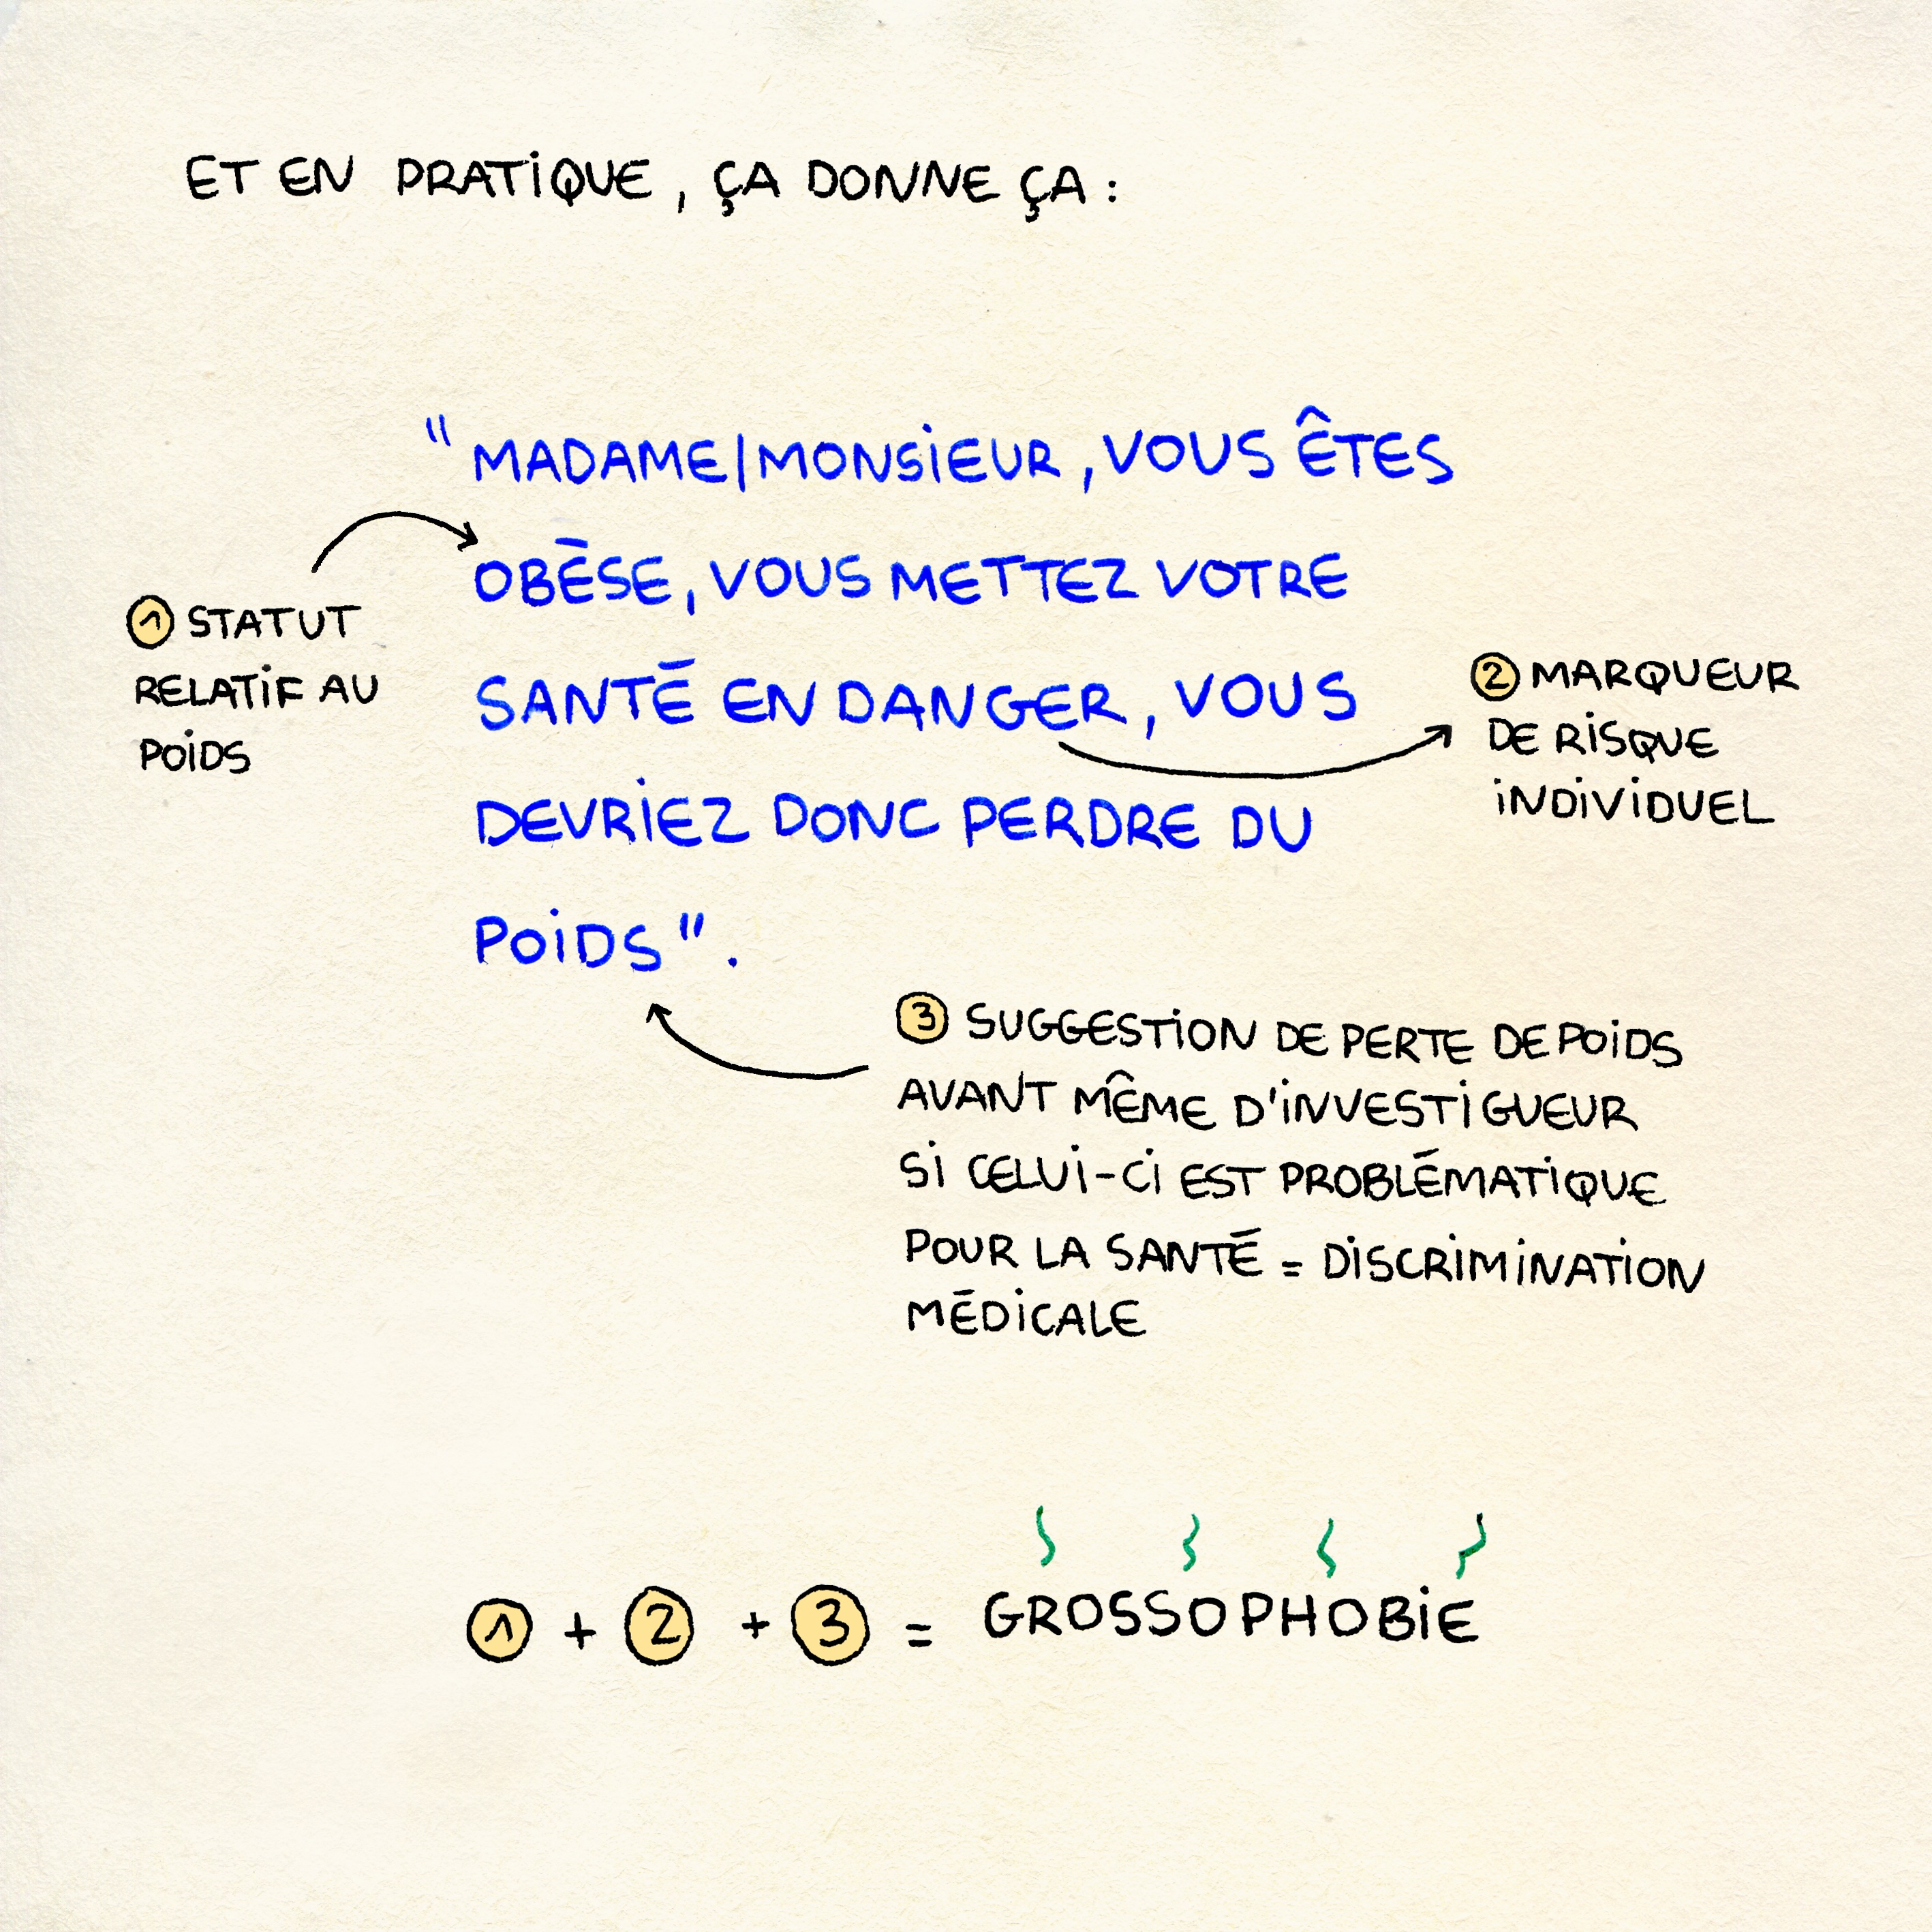 ET EN PRATIQUE, ÇA DONNE ÇA :
"MADAME/MONSIEUR, VOUS ÊTES
OBÈSE, VOUS METTEZ VOTRE
SANTÉ EN DANGER, VOUS
DEVRIEZ DONC PERDRE DU
POIDS".
1 STATUT
RELATIF AU
POIDS
2 MARQUEUR
DE RISQUE
INDIVIDUEL
3 SUGGESTION DE PERTE DE POIDS
AVANT MÊME D'INVESTIGUEUR
SI CELUI-CI EST PROBLÉMATIQUE
POUR LA SANTÉ = DISCRIMINATION
MÉDICALE
1 + 2 + 3 = GROSSOPHOBIE